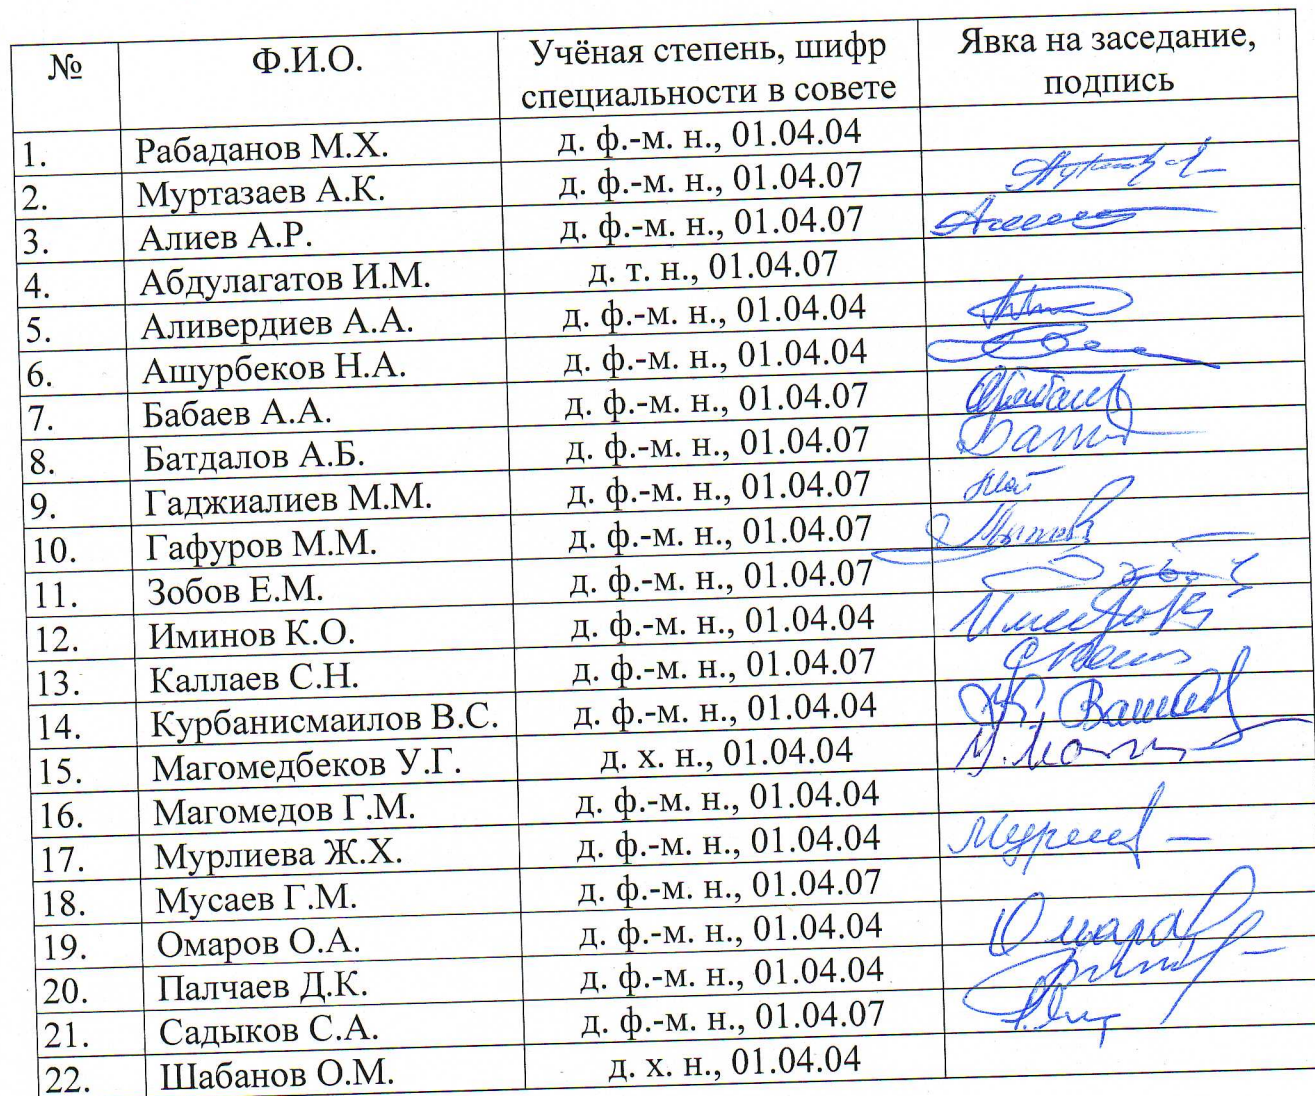 № Ф.И.О. Учёная степень, шифр Явка на заседание,
специальности в совете подпись
1. Рабаданов М.Х. д. ф.-м. н., 01.04.04
2. Муртазаев А.К. д. ф.-м. н., 01.04.07
3. Алиев А.Р. д. ф.-м. н., 01.04.07
4. Абдулагатов И.М. д. т. н., 01.04.07
5. Аливердиев А.А. д. ф.-м. н., 01.04.04
6. Ашурбеков Н.А. д. ф.-м. н., 01.04.04
7. Бабаев А.А. д. ф.-м. н., 01.04.07
8. Батдалов А.Б. д. ф.-м. н., 01.04.07
9. Гаджиалиев М.М. д. ф.-м. н., 01.04.07
10. Гафуров М.М. д. ф.-м. н., 01.04.07
11. Зобов Е.М. д. ф.-м. н., 01.04.07
12. Иминов К.О. д. ф.-м. н., 01.04.04
13. Каллаев С.Н. д. ф.-м. н., 01.04.07
14. Курбанисмаилов В.С. д. ф.-м. н., 01.04.04
15. Магомедбеков У.Г. д. х. н., 01.04.04
16. Магомедов Г.М. д. ф.-м. н., 01.04.04
17. Мурлиева Ж.Х. д. ф.-м. н., 01.04.04
18. Мусаев Г.М. д. ф.-м. н., 01.04.07
19. Омаров О.А. д. ф.-м. н., 01.04.04
20. Палчаев Д.К. д. ф.-м. н., 01.04.04
21. Садыков С.А. д. ф.-м. н., 01.04.07
22. Шабанов О.М. д. х. н., 01.04.04